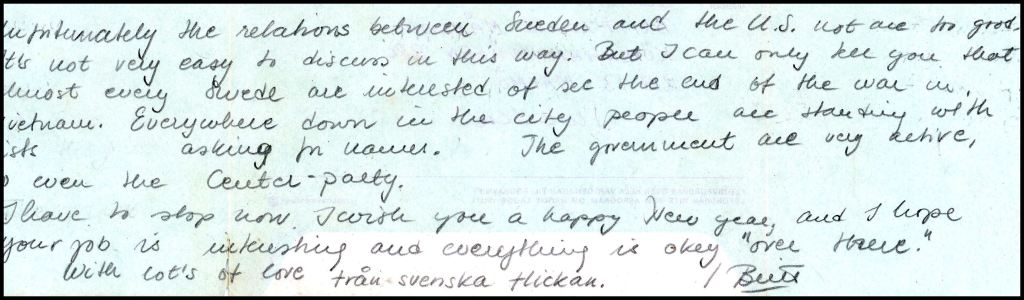 Unfortunately the relations between Sweden and the U.S. not are to good.
It's not very easy to discuss in this way. But I can only tell you that
almost every Swede are interested of see the end of the war in
Vietnam. Everywhere down in the city people are standing with
lists asking for names. The government are very active,
so even the Center-party.
I have to stop now. I wish you a happy New year, and I hope
your job is interesting and everything is okey "over there."
With lot's of love från svenska flickan. / Britt